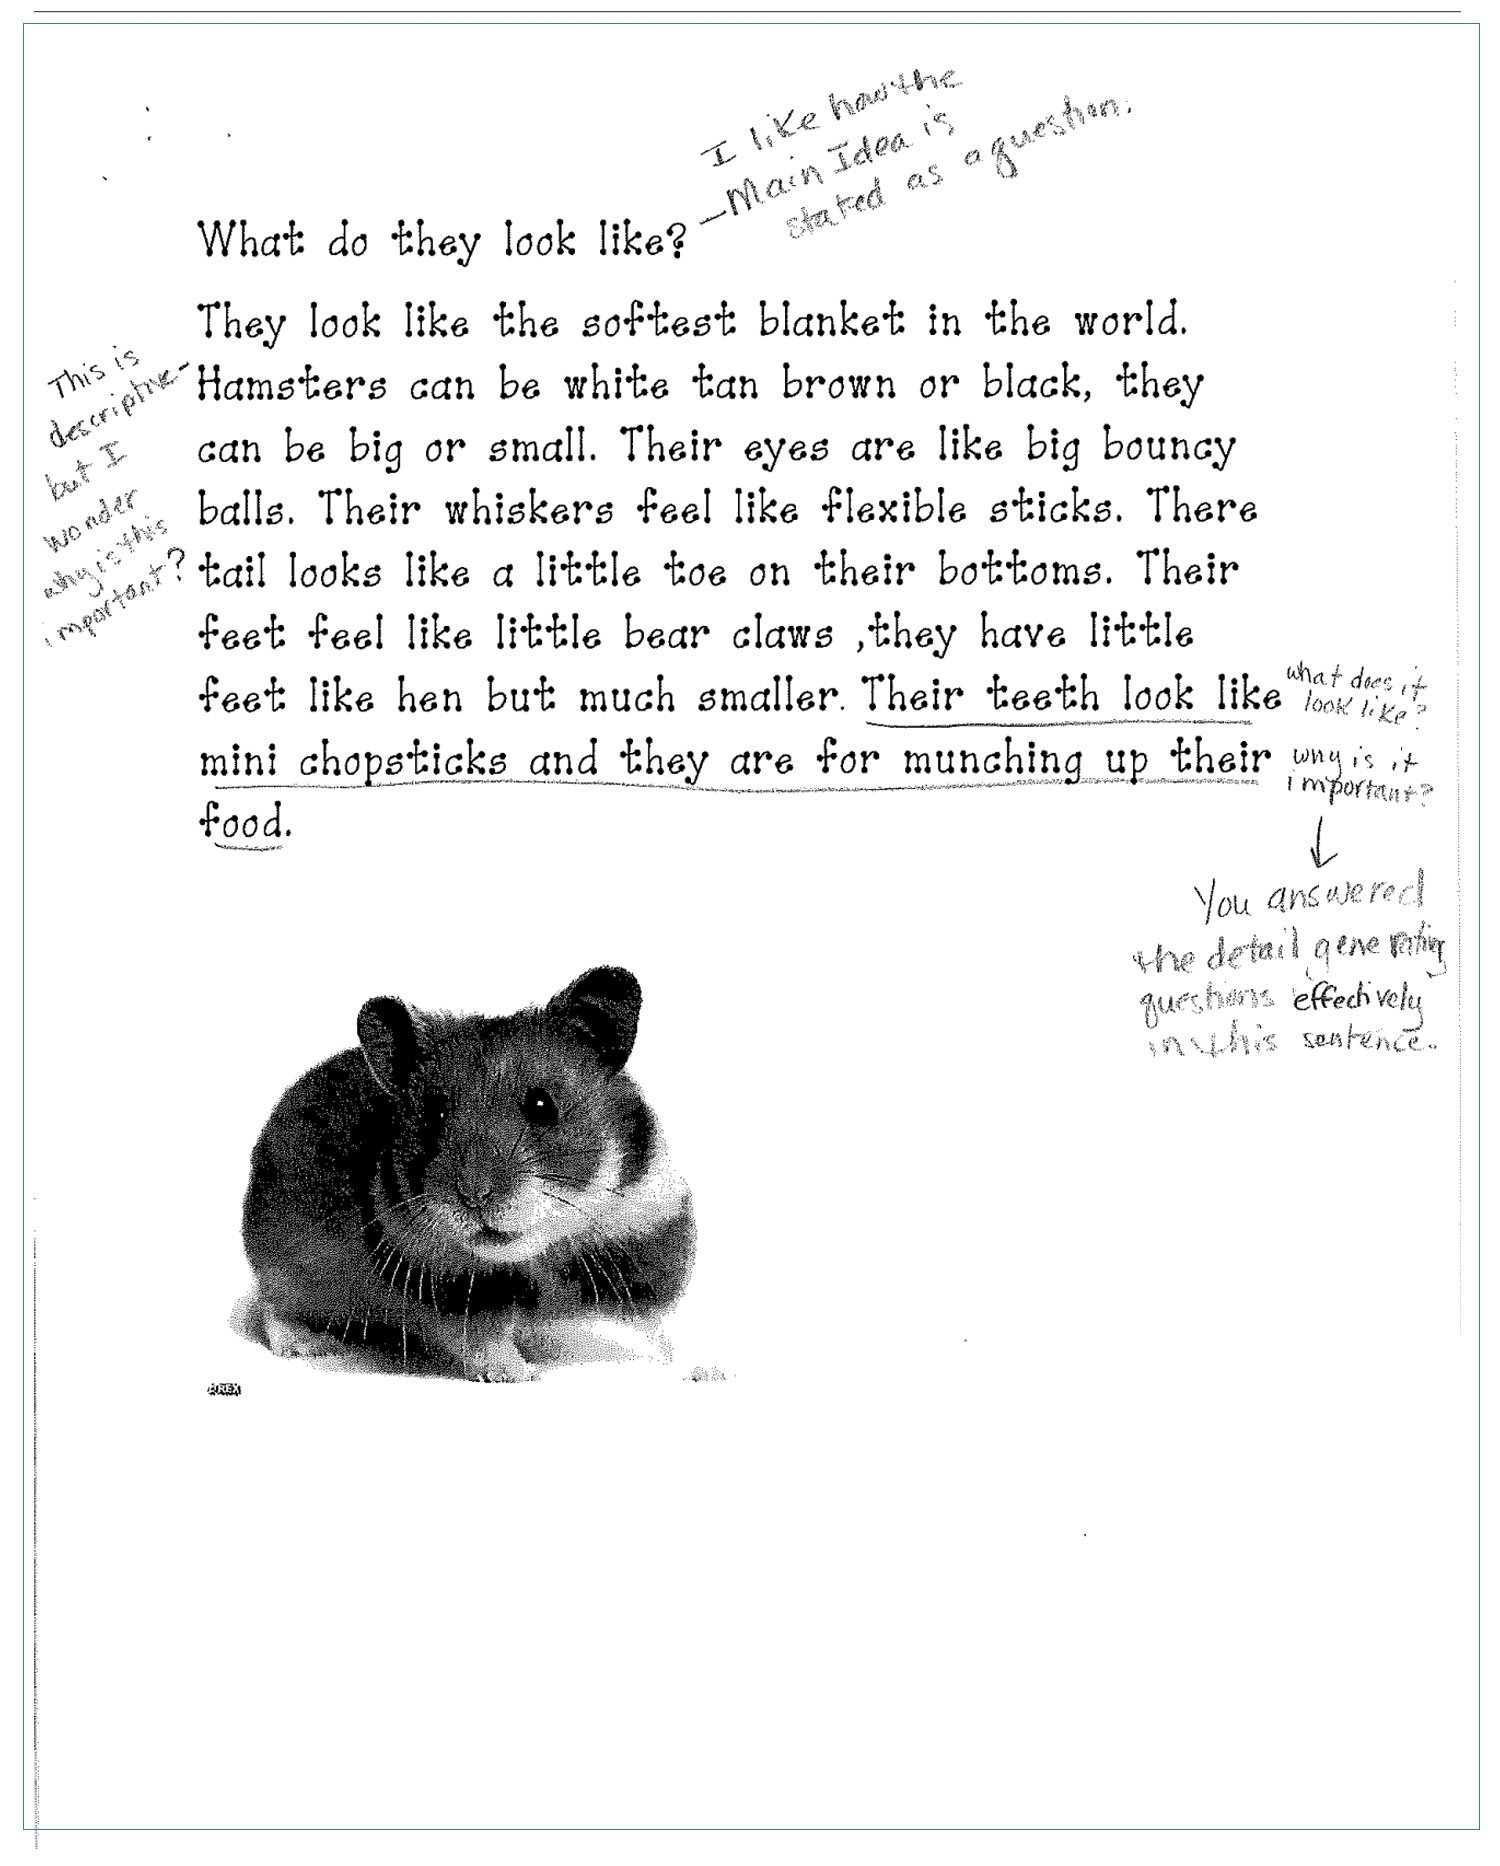 I like how the
Main Idea is
stated as a question.
What do they look like?
They look like the softest blanket in the world.
Hamsters can be white tan brown or black, they
can be big or small. Their eyes are like big bouncy
balls. Their whiskers feel like flexible sticks. There
tail looks like a little toe on their bottoms. Their
feet feel like little bear claws ,they have little
feet like hen but much smaller. Their teeth look like
mini chopsticks and they are for munching up their
food.
This is
descriptive-
but I
wonder
why is this
important?
what does it
look like?
why is it
important?
You answered
the detail generating
questions effectively
in this sentence.
REX